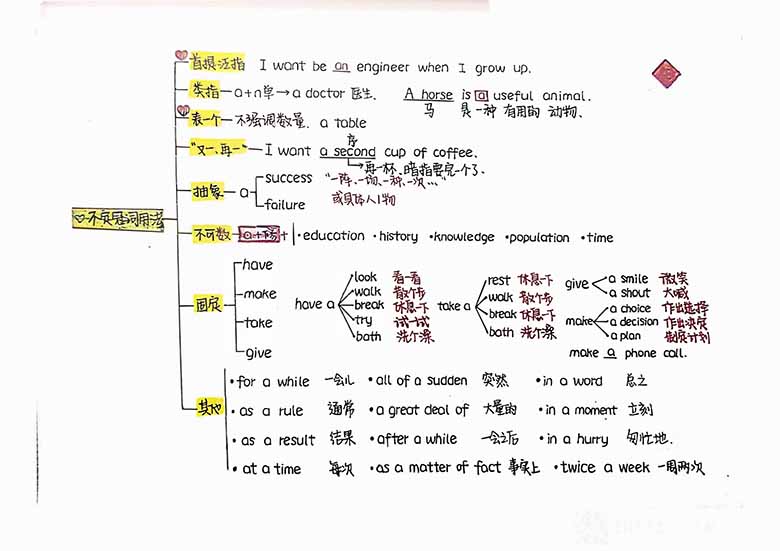 不定冠词用法
首提泛指 I want be an engineer when I grow up.
类指 a+n单→a doctor 医生. A horse is a useful animal.
马 是一种 有用的 动物.
表一个 不强调数量. a table
"又一、再一" I want a second cup of coffee.
序
→再一杯、暗指要完一个了.
抽象 a success "一阵、一场、一种、一次..."
failure 或具体人/物
不可数 ·education ·history ·knowledge ·population ·time
固定
have
make
take
give
have a
look 看一看
walk 散个步
break 休息一下
try 试一试
bath 洗个澡
take a
rest 休息一下
walk 散个步
break 休息一下
bath 洗个澡
give
a smile 微笑
a shout 大喊
make
a choice 作出选择
a decision 作出决定
a plan 制定计划
make a phone call.
其他
·for a while 一会儿 ·all of a sudden 突然 ·in a word 总之
·as a rule 通常 ·a great deal of 大量的 ·in a moment 立刻
·as a result 结果 ·after a while 一会之后 ·in a hurry 匆忙地.
·at a time 每次 ·as a matter of fact 事实上 ·twice a week 一周两次